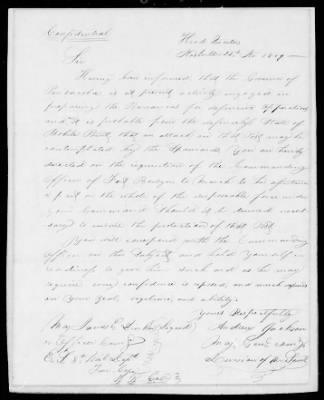 Confidential
Head Quarters
Nashville 22d Nov 1819
Sir
Having been informed that the Governor of
Pensacola is at present actively engaged in
preparing the Barancas for defensive operations
and it is probable from the defenceless state of
Mobile Point, that an attack on that Post may be
contemplated by the Spaniards. You are hereby
directed on the requisition of the Commanding
officer of Fort Bowyer to march to his assistance
a part or the whole of the disposable force under
your Command should it be deemed necessary
to insure the protection of that Post
You will correspond with the Commanding
officer on this subject and hold yourself in
readiness to give him such aid as he may
require every confidence is reposed, and much expected
on your zeal, vigilance, and ability.
Yours Respectfully
Andrew Jackson
Maj. Genl Comdg
Division of the South
Maj James E
or Officer Comdg
8th